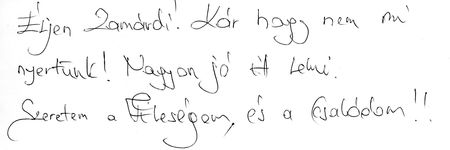 Éljen Zamárdi! Kár hogy nem mi
nyertünk! Nagyon jó itt Lenni.
Szeretem a Feleségem, és a Családom!!